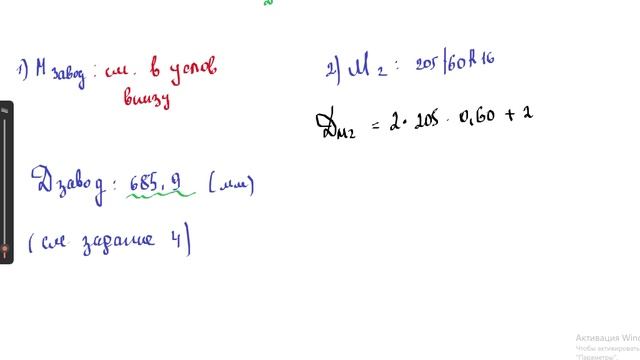 1) М завод: см. в услов
внизу
Dзавод: 685,9 (мм)
(см задание 4)
2) М2: 205/60R16
Dм2 = 2·205·0,60+2
Активация Wind
Чтобы активировать
"Параметры".